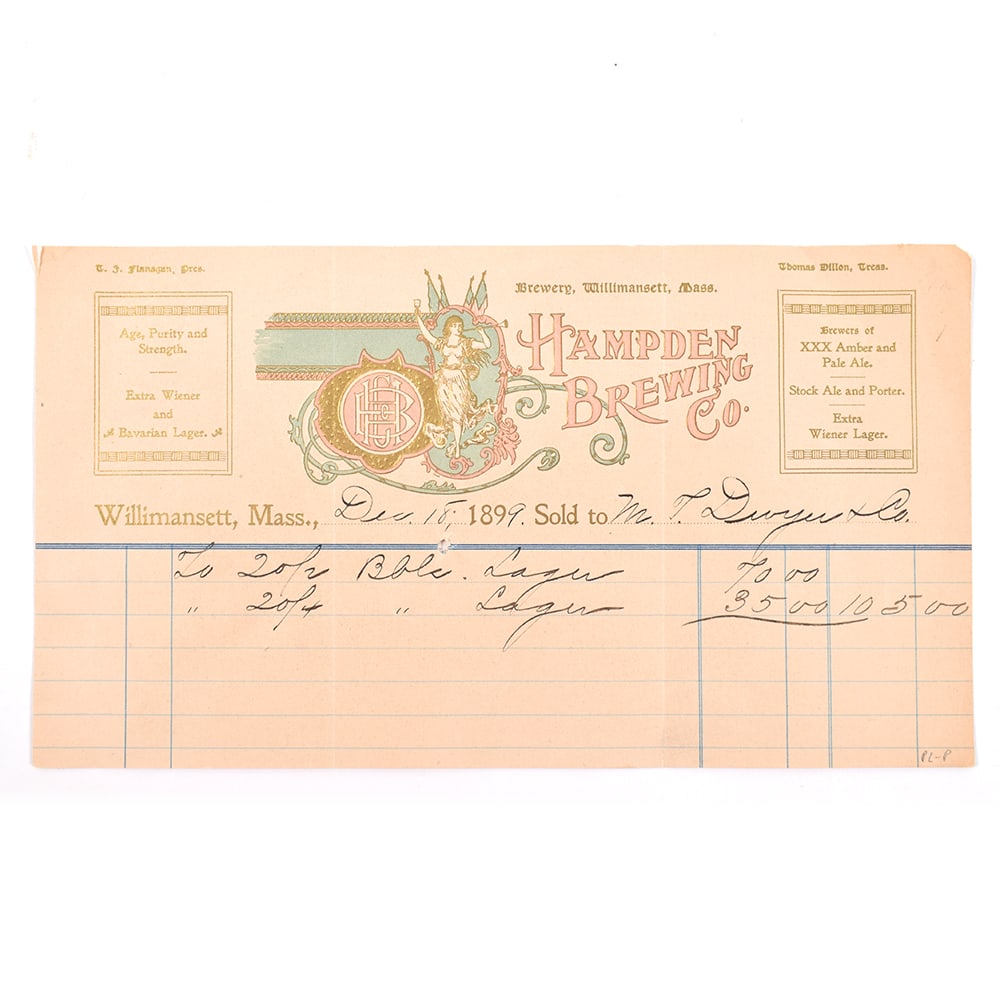 T. J. Flanagan, Pres.
Thomas Dillon, Treas.
Brewery, Willimansett, Mass.
Age, Purity and
Strength.
Extra Wiener
and
Bavarian Lager.
HBCo
HAMPDEN
BREWING
CO.
Brewers of
XXX Amber and
Pale Ale.
Stock Ale and Porter.
Extra
Wiener Lager.
Willimansett, Mass., Dec. 18, 1899. Sold to M. T. Dwyer & Co.
To 20/2 Bbls. Lager 70 00
" 20/4 " Lager 35 00 105 00
PL-P